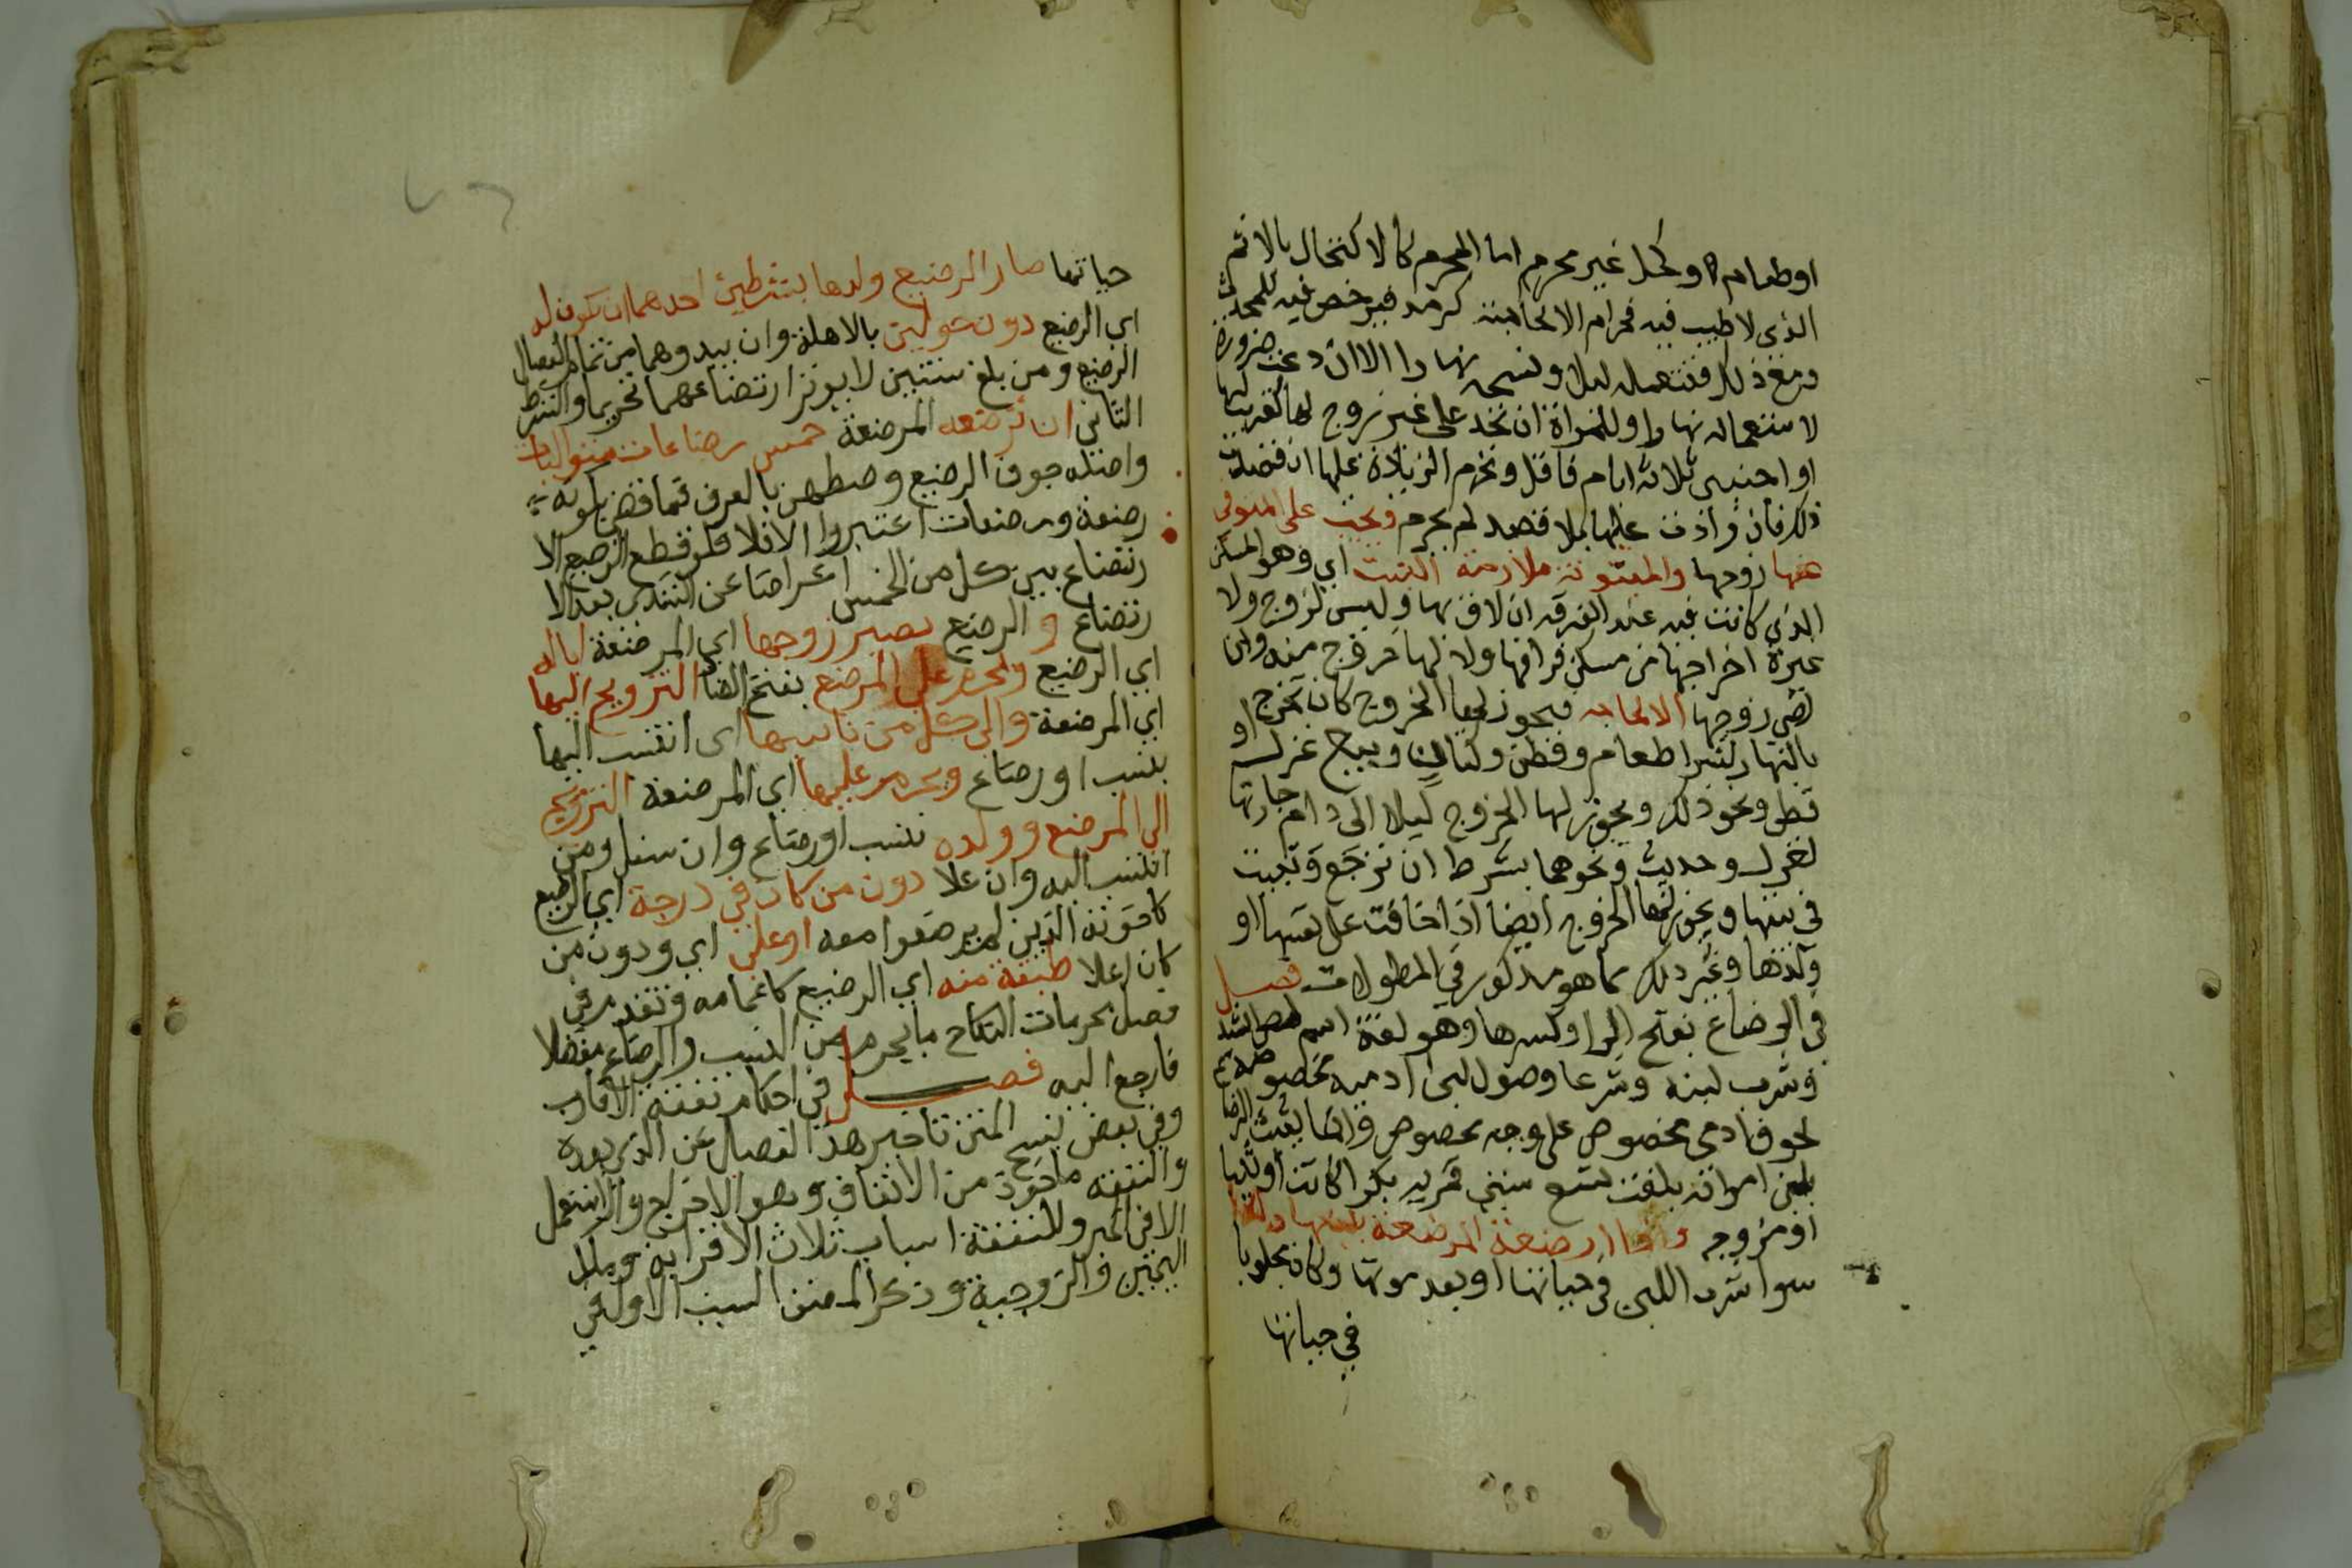 او طعام او كحل غير محرم اما المحرم كالاكتحال بالاثم
الذي لا طيب فيه فحرام الا لحاجة كرمد فيرخص فيه للمحدة
ومع ذلك فتستعمله ليلا وتمسحه نهارا الا ان دعت ضرورة
لاستعماله نهارا وللمراة ان تحد على غير زوج لها كقريب لها
او اجنبي ثلاثة ايام فاقل وتحرم الزيادة عليها ان قصدت
ذلك فان زادت عليها بلا قصد لم يحرم ويجب على المتوفى
عنها زوجها والمبتوتة ملازمة البيت اي وهو المسكن
الذي كانت فيه عند الفرقة ان لاق بها وليس لزوج ولا
غيره اخراجها من مسكن فراقها ولا لها خروج منه وان
رضي زوجها الا لحاجة فيجوز لها الخروج كان تخرج
بالنهار لشرا طعام وقطن وكتان وبيع غزل او
قطن ونحو ذلك ويجوز لها الخروج ليلا الى دار جارتها
لغزل وحديث ونحوهما بشرط ان ترجع وتبيت
في بيتها ويجوز لها الخروج ايضا اذا خافت على نفسها او
ولدها وغير ذلك مما هو مذكور في المطولات فصل
في الرضاع بفتح الرا وكسرها وهو لغة اسم لمص الثدي
وشرب لبنه وشرعا وصول لبن ادمية مخصوصة
لجوف ادمي مخصوص على وجه مخصوص وانما يثبت الرضاع
بلبن امراة بلغت تسع سنين قمرية بكرا كانت او ثيبا
او مزوجة واذا ارضعت المرضعة بلبنها ولدا
سوا شرب اللبن في حياتها او بعد موتها وكان محلوبا
في حياتها
حياتها صار الرضيع ولدها بشرطين احدهما ان يكون له
اي الرضيع دون حولين بالاهلة وان بيدوهما من تمام انفصال
الرضيع ومن بلغ سنتين لا يوثر ارتضاعهما تحريما والشرط
الثاني ان ترضعه المرضعة خمس رضاعات متواليات
واصلة جوف الرضيع وضبطهن بالعرف فما قضى بكونه
رضعة ورضعات اعتبروا الا فلا فلو قطع الرضيع الا
رتضاع بين كل من الخمس اعراضا عن الثدي بعد الا
رتضاع و الرضيع يصير زوجها اي المرضعة ابا له
اي الرضيع ويحرم على المرضع بفتح الضاد التزويج اليها
اي المرضعة والى كل من ناسبها اي انتسب اليها
بنسب او رضاع ويحرم عليها اي المرضعة التزويج
الى المرضع وولده بنسب او رضاع وان سفل ومن
انتسب اليه وان علا دون من كان في درجة اي الرضيع
كاخوته الذين لم يرضعوا معه او على اي ودون من
كان اعلا طبقة منه اي الرضيع كاعمامه وتقدم في
فصل محرمات النكاح ما يحرم من النسب والرضاع مفصلا
فارجع اليه فصل في احكام نفقة الاقارب
وفي بعض نسخ المتن تاخير هذا الفصل عن الذي بعده
والنفقة ماخوذة من الانفاق وهو الاخراج ولا يستعمل
الا في الخير وللنفقة اسباب ثلاث الاقرابة وملك
اليمين والزوجية وذكر المصنف السبب الاول في